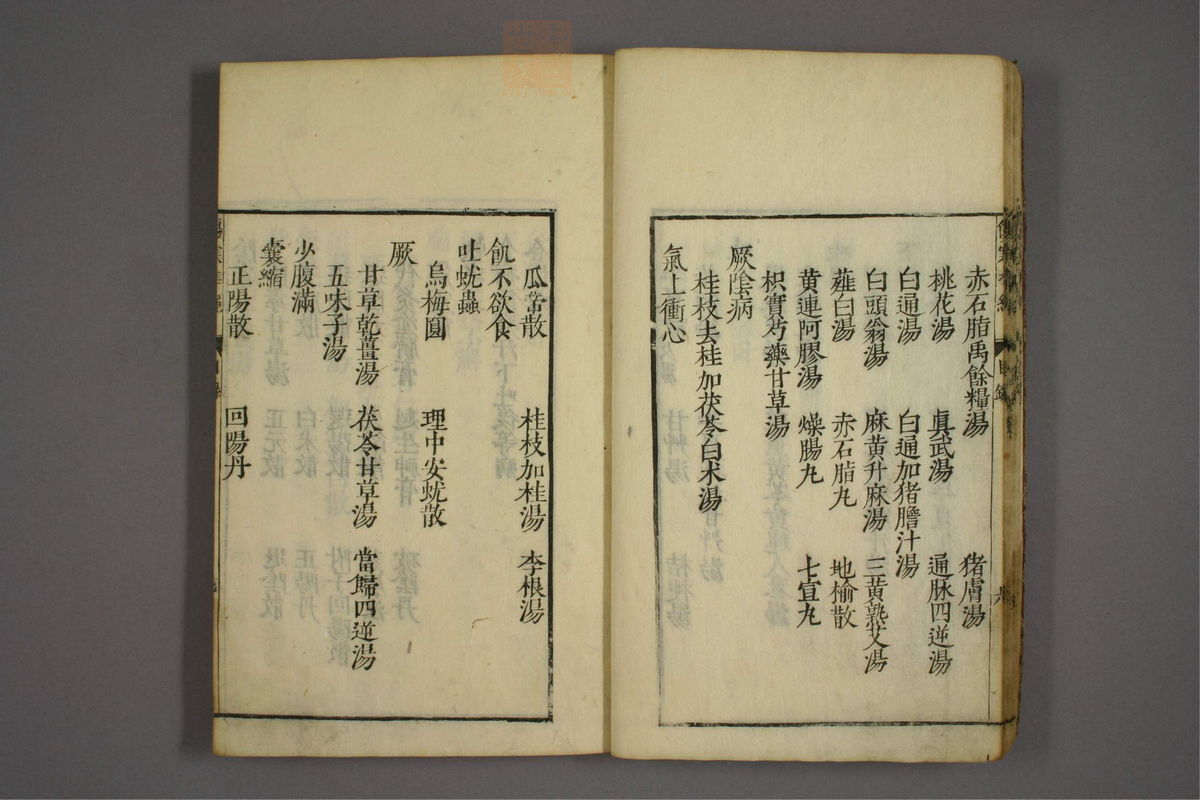 赤石脂禹餘糧湯 猪膚湯
桃花湯 眞武湯 通脉四逆湯
白通湯 白通加猪膽汁湯
白頭翁湯 麻黃升麻湯 三黃熟艾湯
薤白湯 赤石脂丸 地榆散
黃連阿膠湯 燥腸丸 七宣丸
枳實芍藥甘草湯
厥陰病
桂枝去桂加茯苓白术湯
氣上衝心
瓜蒂散 桂枝加桂湯 李根湯
飢不欲食
吐蚘蟲
烏梅圓 理中安蚘散
厥
甘草乾薑湯 茯苓甘草湯 當歸四逆湯
五味子湯
少腹滿
囊縮
正陽散 回陽丹